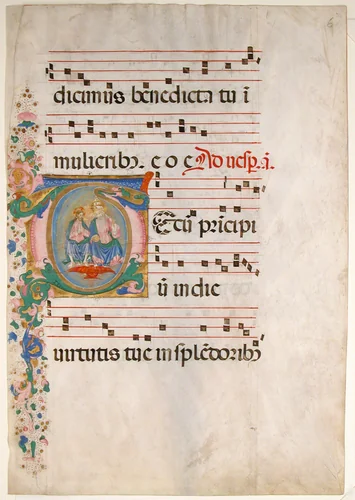 dicimus benedicta tu ī
mulierib₉. e o e Ad uesp. ā.
Tecū prīcipi
ū in die
uirtutis tue in splēdorib₉